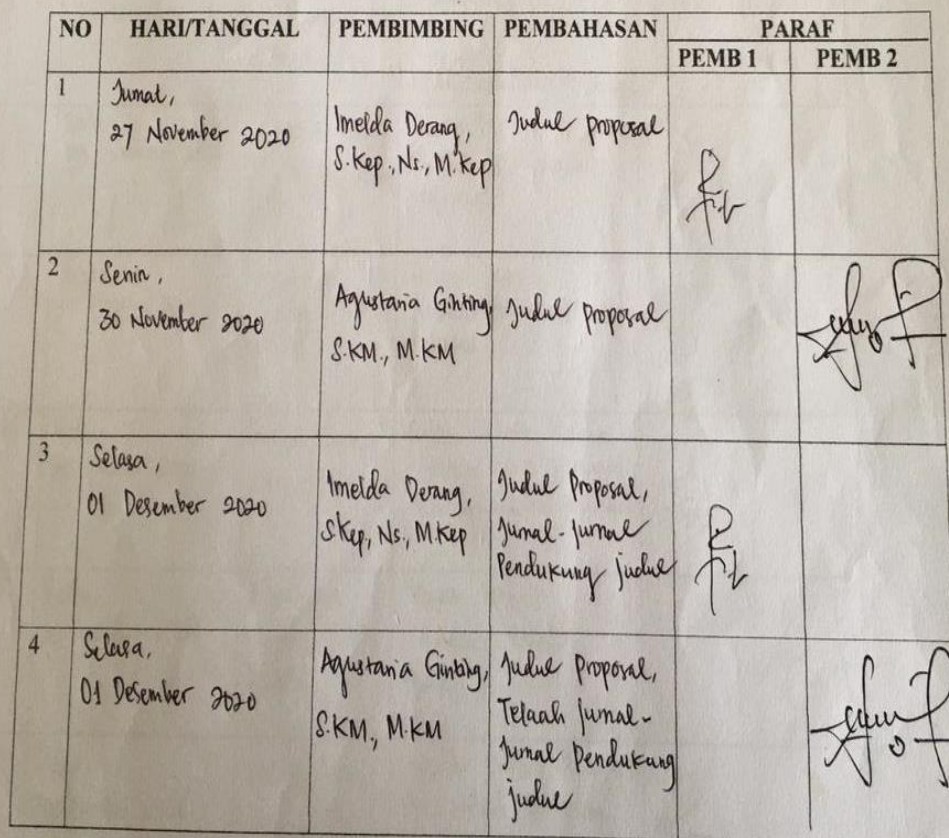 NO HARI/TANGGAL PEMBIMBING PEMBAHASAN PARAF
PEMB 1 PEMB 2
1 Jumat,
27 November 2020
Imelda Derang,
S.Kep., Ns., M.Kep
Judul proposal
2 Senin,
30 November 2020
Agustaria Ginting,
S.KM., M.KM
Judul proposal
3 Selasa,
01 Desember 2020
Imelda Derang,
SKep, Ns., M.Kep
Judul Proposal,
Jurnal-Jurnal
Pendukung judul
4 Selasa,
01 Desember 2020
Agustaria Ginting,
S.KM., M.KM
Judul Proposal,
Telaah Jurnal-
Jurnal Pendukung
judul